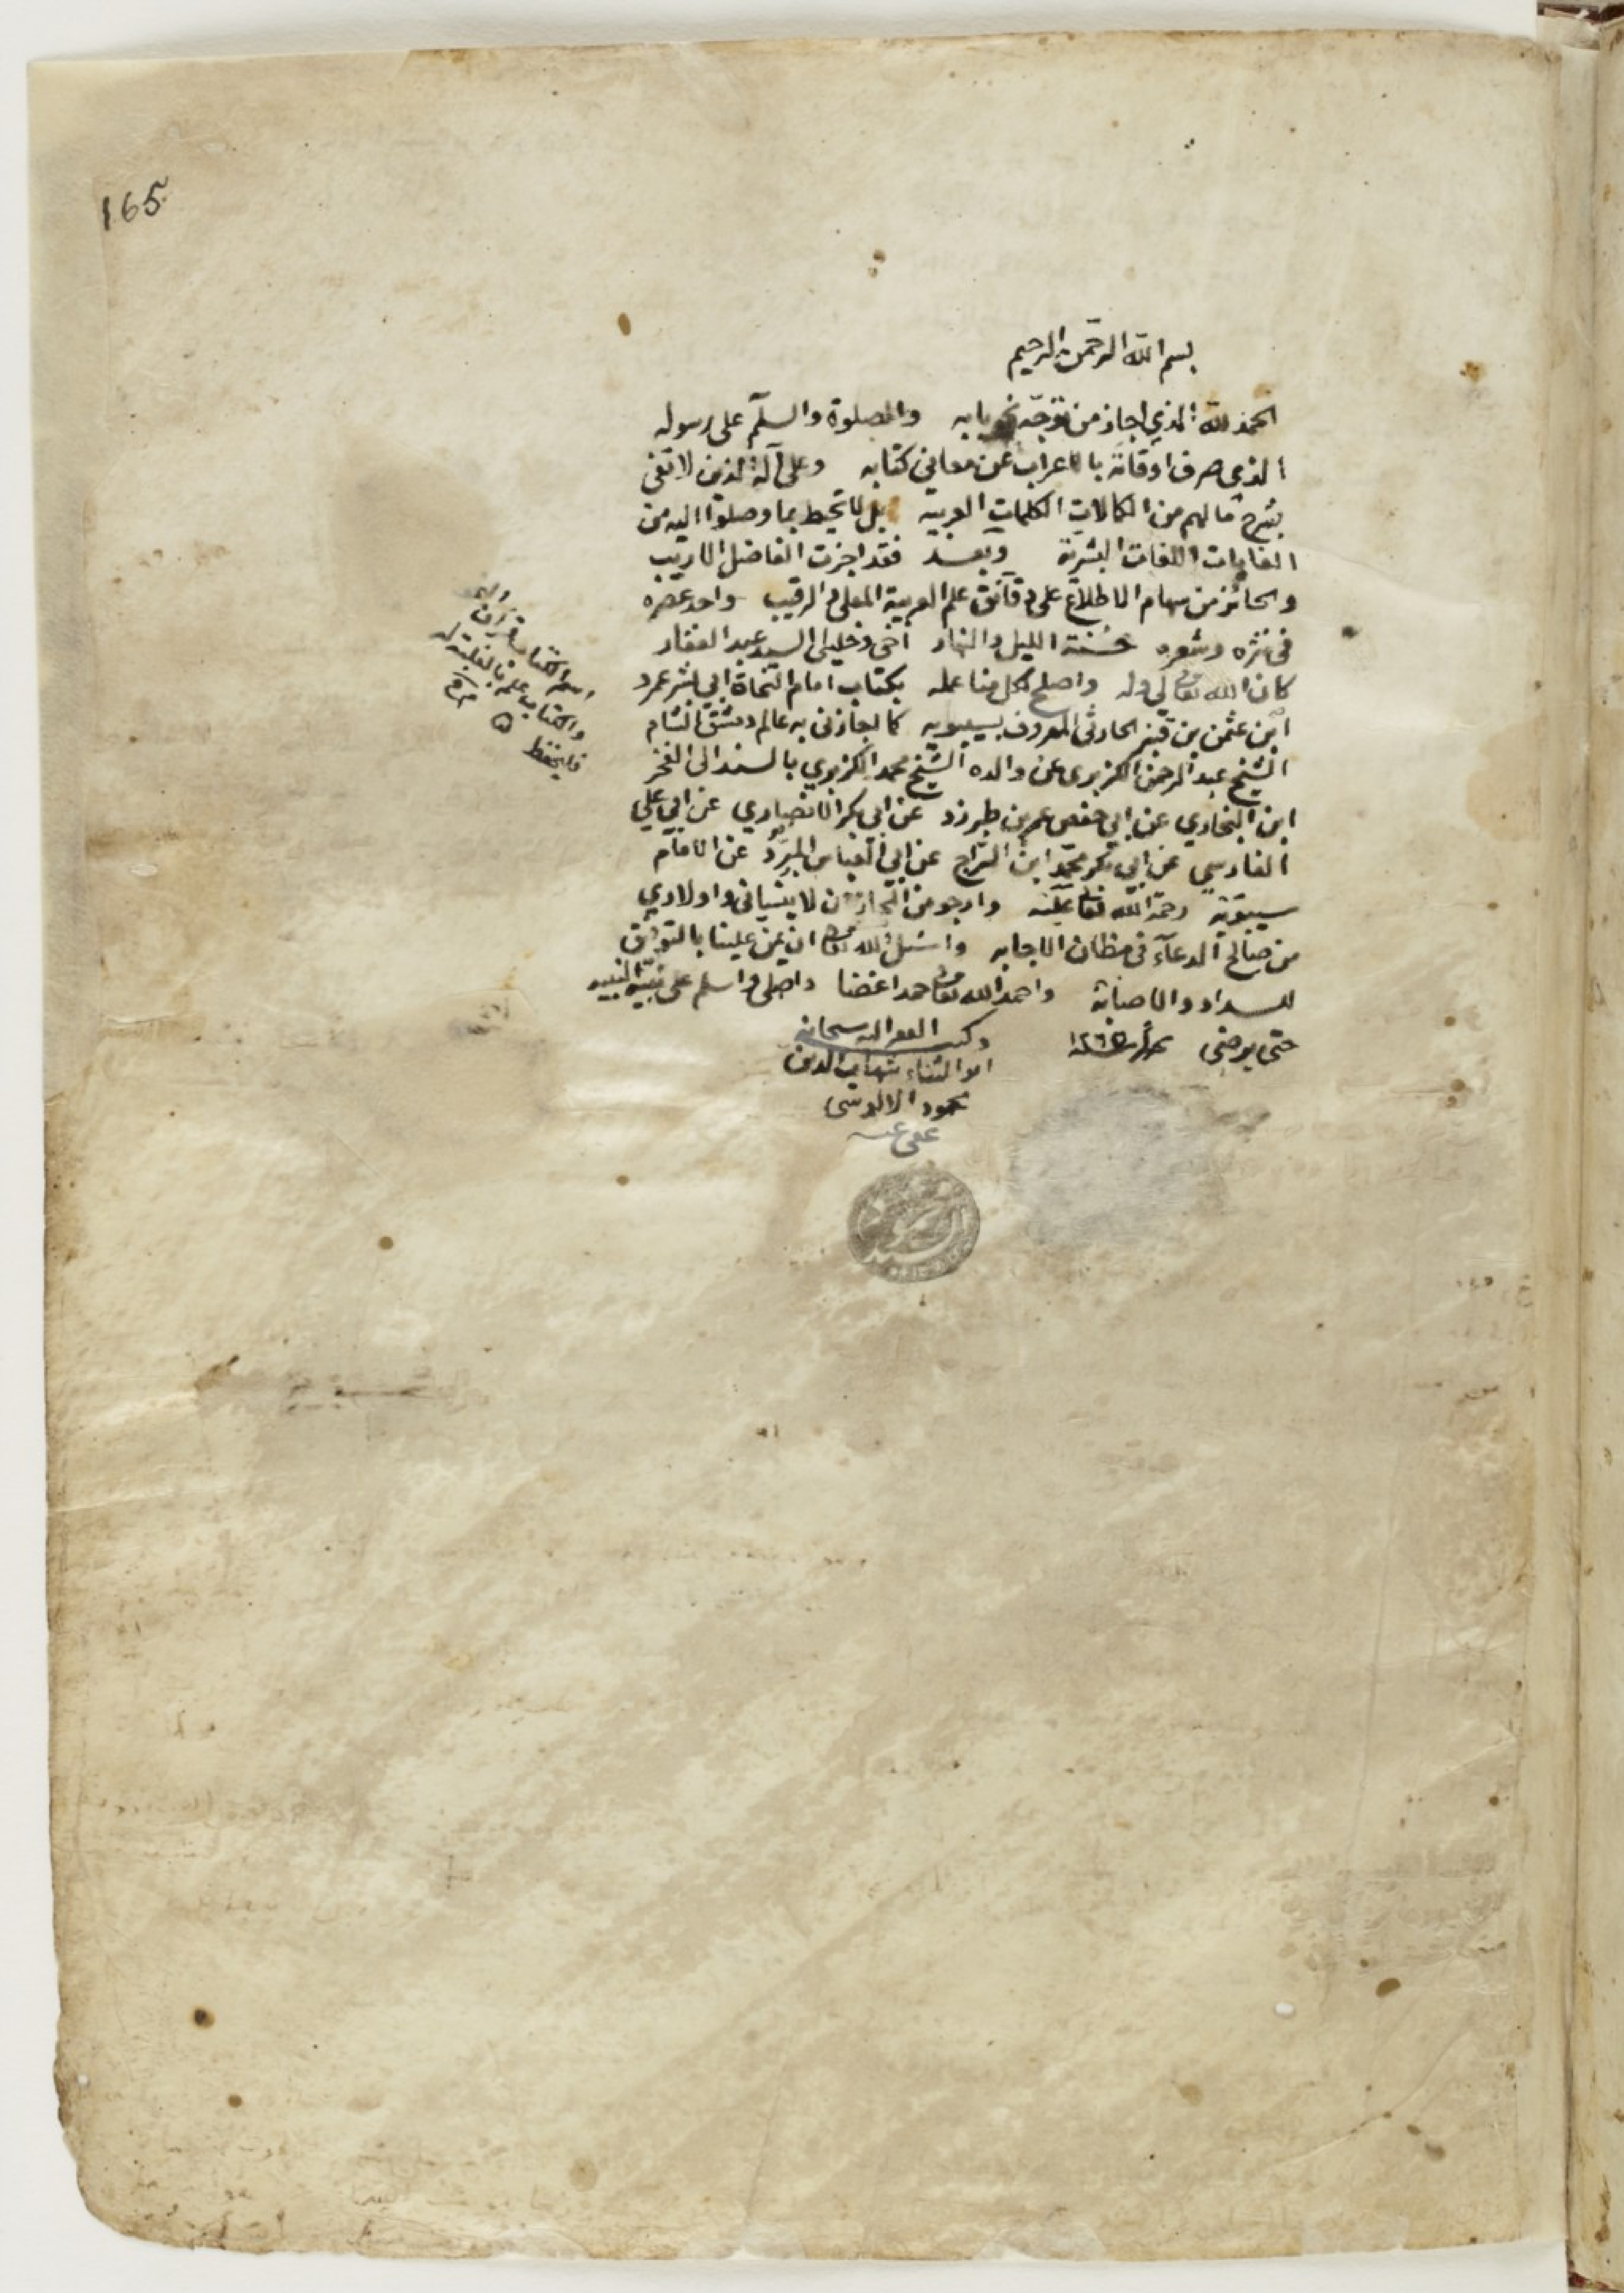 165
بسم الله الرحمن الرحيم
الحمد لله الذي اجاز من توجّه نحو بابه والصلوة والسلم على رسوله
الذي صرف اوقاته بالاعراب عن معاني كتابه وعلى آله الذين لا تفى
بشرح ما لهم من الكمالات الكلمات العربيه بل لا تحيط بما وصلوا اليه من
الغايات اللغات البشرية وبعد فقد اجزت الفاضل الاريب
والحائز من سهام الاطلاع على دقآئق علم العربية المعلى والرقيب واحد عصره
في نثره وشعره حسنة الليل والنهار اخى وخليلى السيد عبد الغفار
كان الله تعالى لي وله واصلح لكل منا عمله بكتاب امام النحاة ابي بشر عمرو
ابن عثمن بن قنبر الحارثى المعروف بسيبويه كما اجازنى به عالم دمشق الشام
الشيخ عبد الرحمن الكزبرى عن والده الشيخ محمد الكزبري بالسند الى الفخر
ابن البخاري عن ابي حفص عمر بن طبرزد عن ابى بكر الانصاري عن ابي علي
الفارسي عن ابي بكر محمد ابن السراج عن ابي العباس المبرّد عن الامام
سيبويه رحمة الله تعالى عليه وارجو من المجاز ان لا ينسيانى واولادي
من صالح الدعآء فى مظان الاجابه واسئل الله تعالى ان يمن علينا بالتوفيق
للسداد والاصابة واحمد الله تعالى حمدا غضا واصلى واسلم على نبيه
حتى يرضى ١٢٦٥
وكتب الفقير اليه سبحانه
ابو الثناء شهاب الدين
محمود الالوسى
عفى عنه
والكتاب علم بالغلبة له
فليحفظ